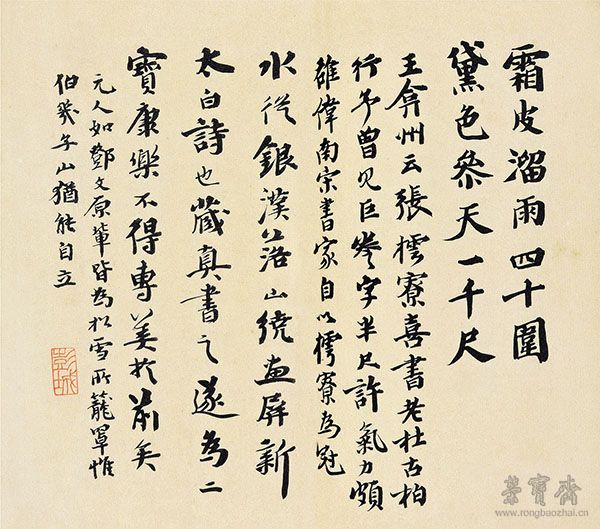 霜皮溜雨四十圍
黛色参天一千尺
王弇州云張樗寮喜書老杜古柏
行予曾見巨卷字半尺許氣力頗
雄偉南宗書家自以樗寮為冠
水從銀漢落山繞畫屏新
太白詩也藏真書之遂為二
寶康樂不得專美於前矣
元人如鄧文原輩皆為松雪所籠罩惟
伯幾子山猶能自立
彭城
榮寶齋
www.rongbaozhai.cn